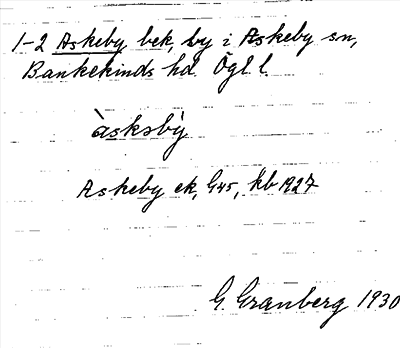 1-2 Askeby bek, by i Askeby sn,
Bankekinds hd. Ögl. l.
àsksby̍
Askeby ek, G45, kb 1927
G. Granberg 1930